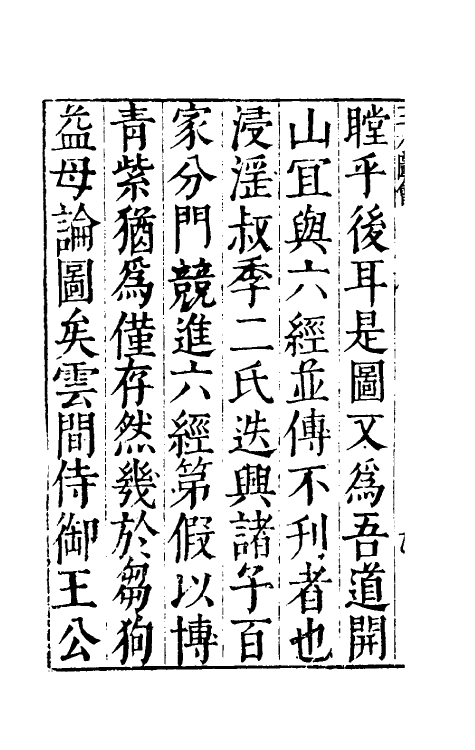 瞠乎後耳是圖又爲吾道開
山宜與六經並傳不刊者也
浸滛叔季二氏迭興諸子百
家分門競進六經第假以博
青紫猶爲僅存然幾於芻狗
益母論圖矣雲間侍御王公